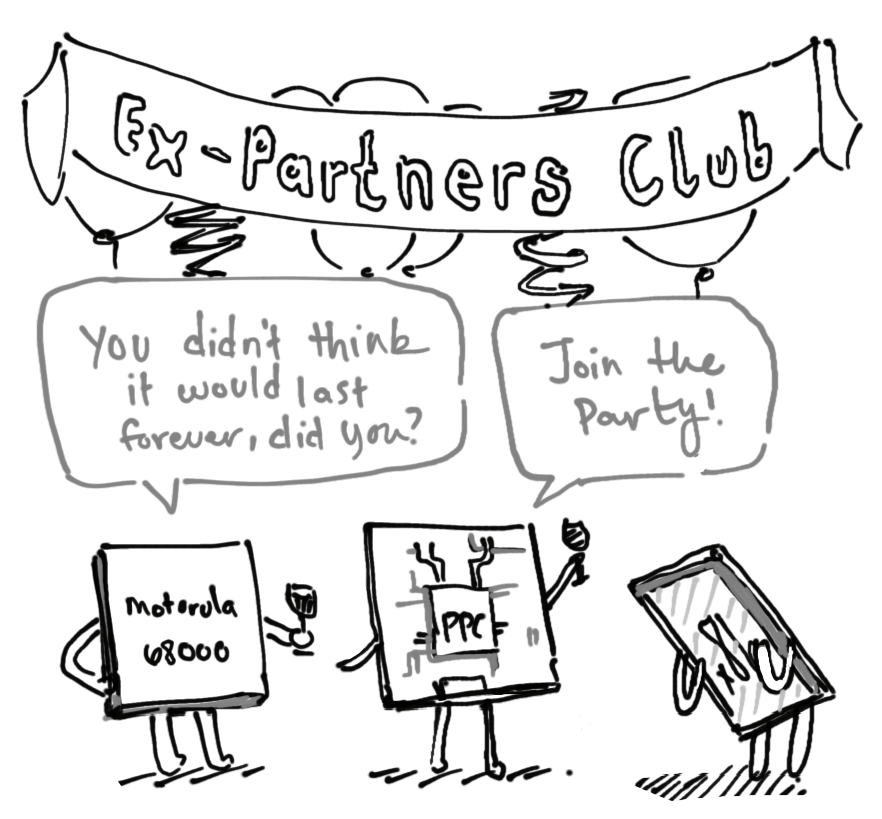 Ex-Partners Club
You didn't think
it would last
forever, did you?
Join the
Party!
Motorola
68000
PPC
x86